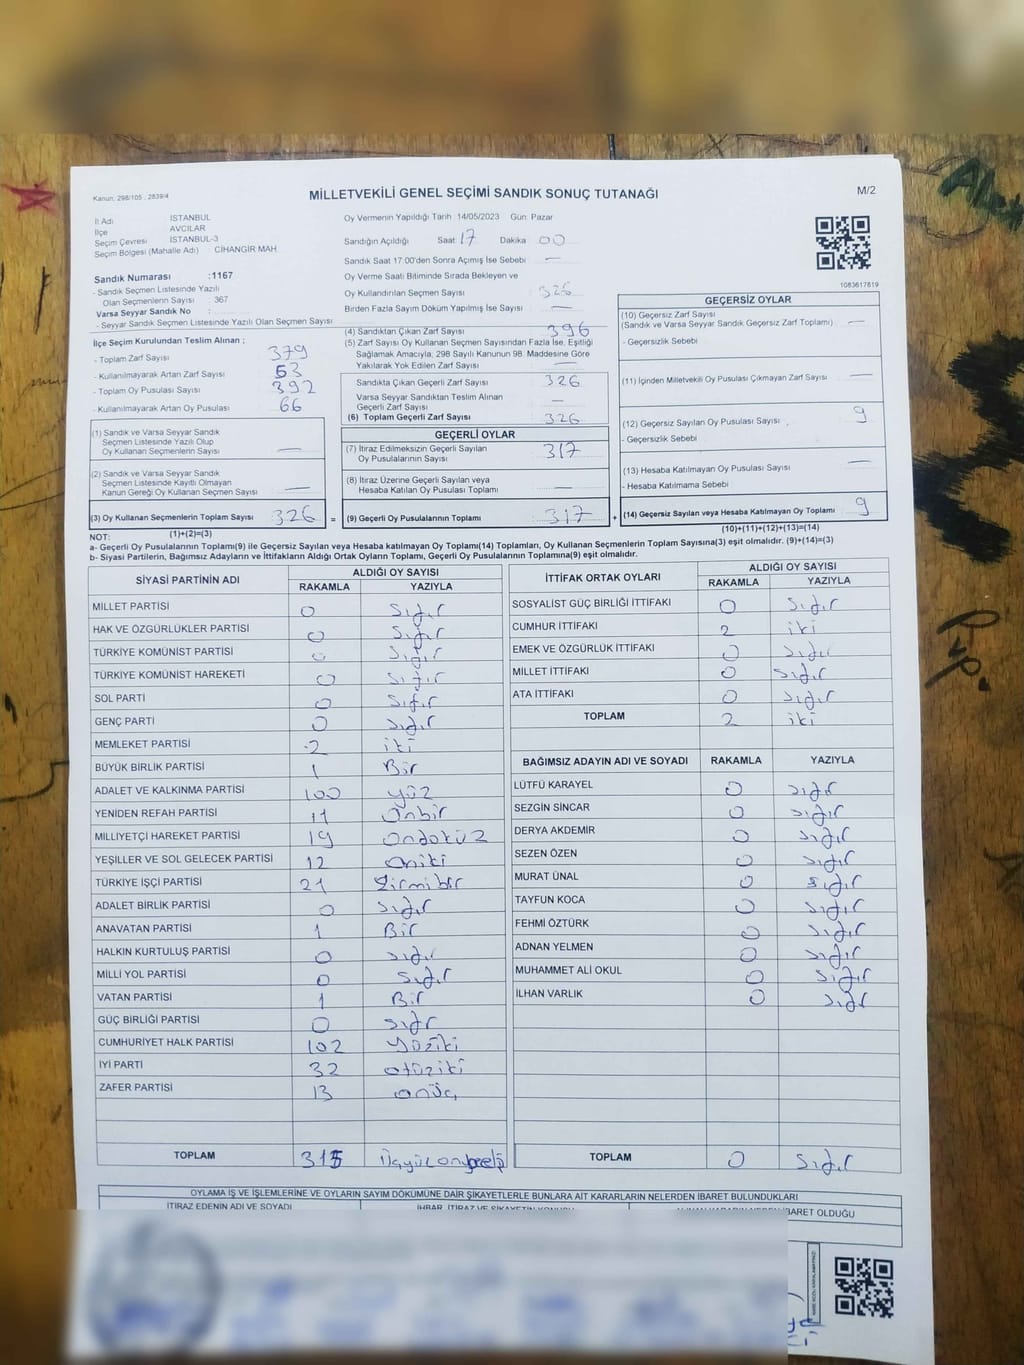 Kanun: 298/105 , 2839/4
MİLLETVEKİLİ GENEL SEÇİMİ SANDIK SONUÇ TUTANAĞI
M/2
İl Adı İSTANBUL
İlçe AVCILAR
Seçim Çevresi İSTANBUL-3
Seçim Bölgesi (Mahalle Adı) CİHANGİR MAH
Sandık Numarası :1167
- Sandık Seçmen Listesinde Yazılı
Olan Seçmenlerin Sayısı : 367
Varsa Seyyar Sandık No :
- Seyyar Sandık Seçmen Listesinde Yazılı Olan Seçmen Sayısı
İlçe Seçim Kurulundan Teslim Alınan ;
- Toplam Zarf Sayısı 379
- Kullanılmayarak Artan Zarf Sayısı 53
- Toplam Oy Pusulası Sayısı 392
- Kullanılmayarak Artan Oy Pusulası 66
(1) Sandık ve Varsa Seyyar Sandık
Seçmen Listesinde Yazılı Olup
Oy Kullanan Seçmenlerin Sayısı —
(2) Sandık ve Varsa Seyyar Sandık
Seçmen Listesinde Kayıtlı Olmayan
Kanun Gereği Oy Kullanan Seçmen Sayısı —
(3) Oy Kullanan Seçmenlerin Toplam Sayısı 326 =
(1)+(2)=(3)
Oy Vermenin Yapıldığı Tarih 14/05/2023 Gün: Pazar
Sandığın Açıldığı Saat 17 Dakika 00
Sandık Saat 17:00'den Sonra Açımış İse Sebebi —
Oy Verme Saati Bitiminde Sırada Bekleyen ve
Oy Kullandırılan Seçmen Sayısı 326
Birden Fazla Sayım Döküm Yapılmış İse Sayısı —
(4) Sandıktan Çıkan Zarf Sayısı 396
(5) Zarf Sayısı Oy Kullanan Seçmen Sayısından Fazla İse, Eşitliği
Sağlamak Amacıyla, 298 Sayılı Kanunun 98. Maddesine Göre
Yakılarak Yok Edilen Zarf Sayısı —
Sandıkta Çıkan Geçerli Zarf Sayısı 326
Varsa Seyyar Sandıktan Teslim Alınan
Geçerli Zarf Sayısı —
(6) Toplam Geçerli Zarf Sayısı 326
GEÇERLİ OYLAR
(7) İtiraz Edilmeksizin Geçerli Sayılan
Oy Pusulalarının Sayısı 317
(8) İtiraz Üzerine Geçerli Sayılan veya
Hesaba Katılan Oy Pusulası Toplamı —
(9) Geçerli Oy Pusulalarının Toplamı 317 +
1083617819
GEÇERSİZ OYLAR
(10) Geçersiz Zarf Sayısı
(Sandık ve Varsa Seyyar Sandık Geçersiz Zarf Toplamı) —
- Geçersizlik Sebebi
(11) İçinden Milletvekili Oy Pusulası Çıkmayan Zarf Sayısı —
(12) Geçersiz Sayılan Oy Pusulası Sayısı 9
- Geçersizlik Sebebi
(13) Hesaba Katılmayan Oy Pusulası Sayısı —
- Hesaba Katılmama Sebebi
(14) Geçersiz Sayılan veya Hesaba Katılmayan Oy Toplamı 9
(10)+(11)+(12)+(13)=(14)
NOT:
a- Geçerli Oy Pusulalarının Toplamı(9) ile Geçersiz Sayılan veya Hesaba katılmayan Oy Toplamı(14) Toplamları, Oy Kullanan Seçmenlerin Toplam Sayısına(3) eşit olmalıdır. (9)+(14)=(3)
b- Siyasi Partilerin, Bağımsız Adayların ve İttifakların Aldığı Ortak Oyların Toplamı, Geçerli Oy Pusulalarının Toplamına(9) eşit olmalıdır.
SİYASİ PARTİNİN ADI ALDIĞI OY SAYISI
RAKAMLA YAZIYLA
MİLLET PARTİSİ 0 Sıfır
HAK VE ÖZGÜRLÜKLER PARTİSİ 0 Sıfır
TÜRKİYE KOMÜNİST PARTİSİ 0 Sıfır
TÜRKİYE KOMÜNİST HAREKETİ 0 Sıfır
SOL PARTİ 0 Sıfır
GENÇ PARTİ 0 Sıfır
MEMLEKET PARTİSİ 2 iki
BÜYÜK BİRLİK PARTİSİ 1 Bir
ADALET VE KALKINMA PARTİSİ 100 yüz
YENİDEN REFAH PARTİSİ 11 Onbir
MİLLİYETÇİ HAREKET PARTİSİ 19 Ondokuz
YEŞİLLER VE SOL GELECEK PARTİSİ 12 Oniki
TÜRKİYE İŞÇİ PARTİSİ 21 Yirmibir
ADALET BİRLİK PARTİSİ 0 Sıfır
ANAVATAN PARTİSİ 1 Bir
HALKIN KURTULUŞ PARTİSİ 0 Sıfır
MİLLİ YOL PARTİSİ 0 Sıfır
VATAN PARTİSİ 1 Bir
GÜÇ BİRLİĞİ PARTİSİ 0 Sıfır
CUMHURİYET HALK PARTİSİ 102 Yüziki
İYİ PARTİ 32 otuziki
ZAFER PARTİSİ 13 onüç
TOPLAM 315 Üçyüzonbeş
İTTİFAK ORTAK OYLARI ALDIĞI OY SAYISI
RAKAMLA YAZIYLA
SOSYALİST GÜÇ BİRLİĞİ İTTİFAKI 0 Sıfır
CUMHUR İTTİFAKI 2 iki
EMEK VE ÖZGÜRLÜK İTTİFAKI 0 Sıfır
MİLLET İTTİFAKI 0 Sıfır
ATA İTTİFAKI 0 Sıfır
TOPLAM 2 iki
BAĞIMSIZ ADAYIN ADI VE SOYADI RAKAMLA YAZIYLA
LÜTFÜ KARAYEL 0 Sıfır
SEZGİN SİNCAR 0 Sıfır
DERYA AKDEMİR 0 Sıfır
SEZEN ÖZEN 0 Sıfır
MURAT ÜNAL 0 Sıfır
TAYFUN KOCA 0 Sıfır
FEHMİ ÖZTÜRK 0 Sıfır
ADNAN YELMEN 0 Sıfır
MUHAMMET ALİ OKUL 0 Sıfır
İLHAN VARLIK 0 Sıfır
TOPLAM 0 Sıfır
OYLAMA İŞ VE İŞLEMLERİNE VE OYLARIN SAYIM DÖKÜMÜNE DAİR ŞİKAYETLERLE BUNLARA AİT KARARLARIN NELERDEN İBARET BULUNDUKLARI
İTİRAZ EDENİN ADI VE SOYADI İHBAR, İTİRAZ VE ŞİKAYETİN KONUSU İBARET OLDUĞU